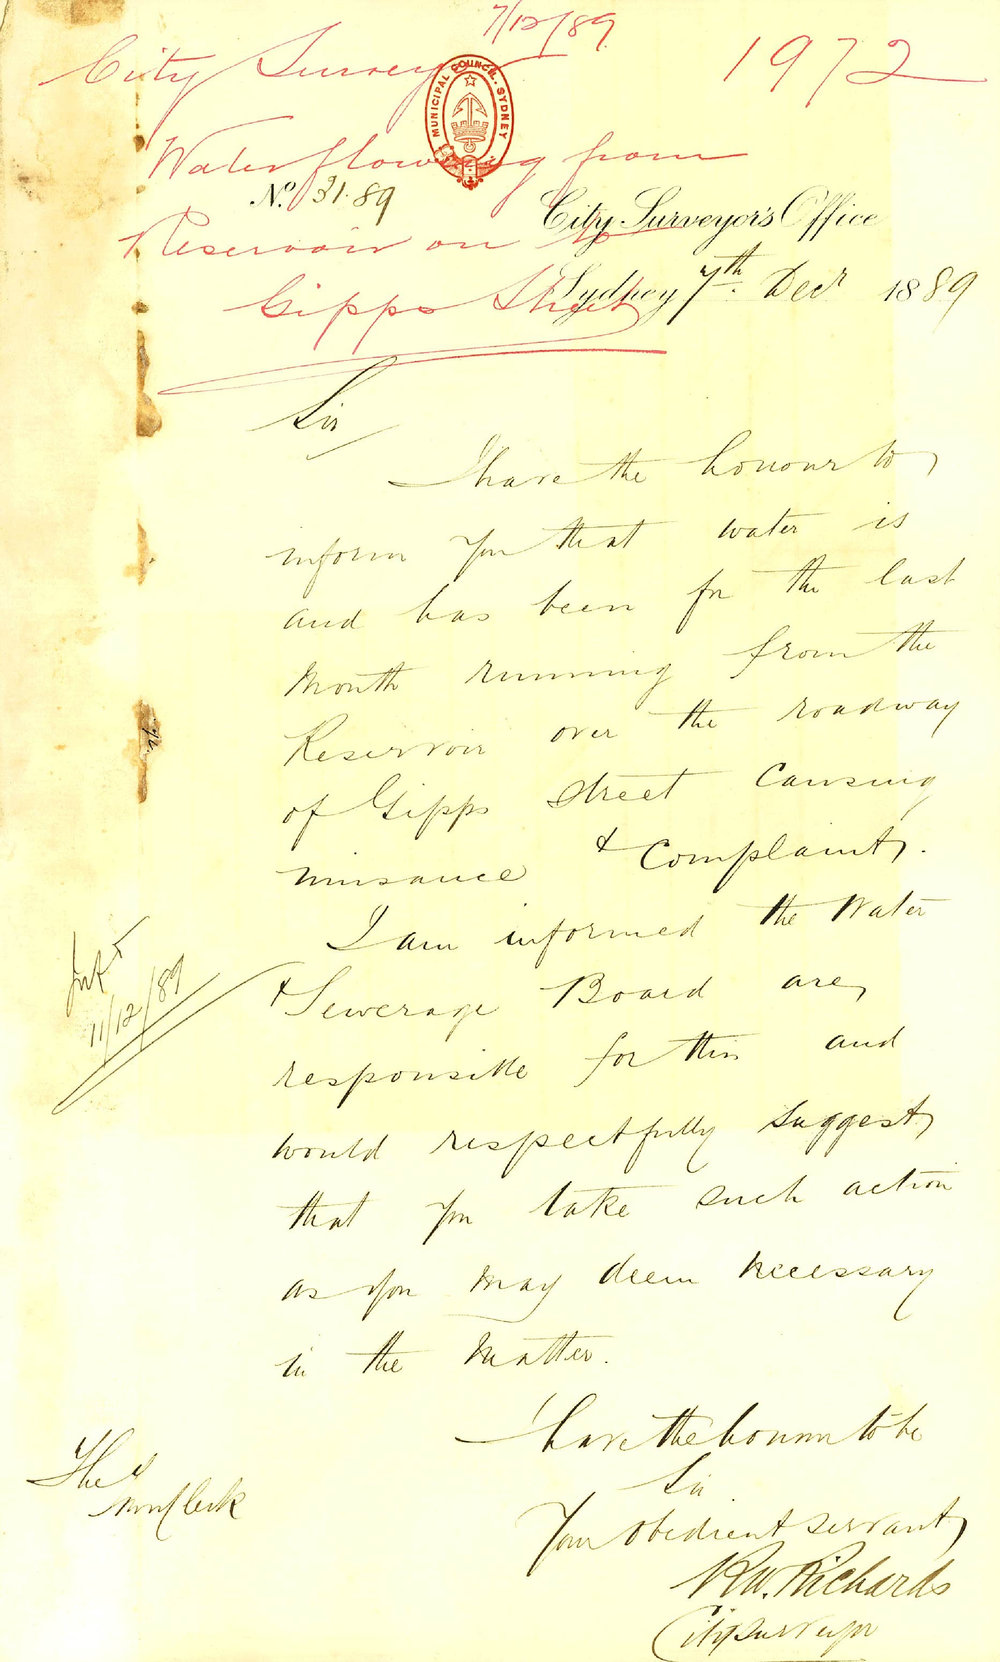 7/12/89
City Surveyor 1972
MUNICIPAL COUNCIL. SYDNEY
Water flowing from
No. 31.89
City Surveyor's Office
Reservoir on to
Sydney 7th. Decr 1889
Gipps Street
Sir
I have the honour to
inform you that water is
and has been for the last
month running from the
Reservoir over the roadway
of Gipps Street causing
nuisance & complaint.
I am informed the Water
& Sewerage Board are
responsible for this and
would respectfully suggest
that you take such action
as you may deem necessary
in the matter.
11/12/89
I have the honour to be
Sir
Your obedient servant
The
Town Clerk
R W. Richards
City Surveyor